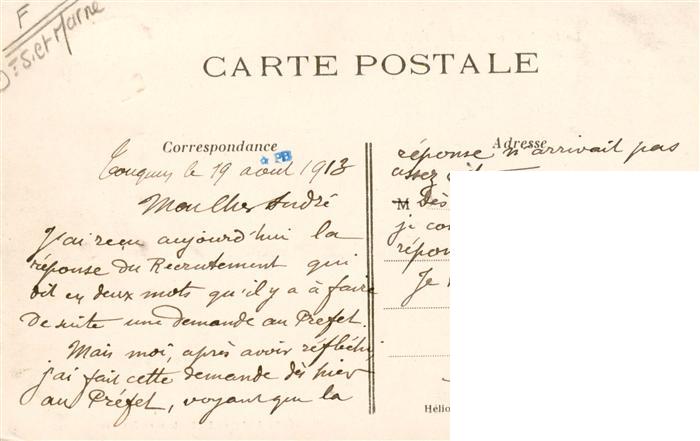 F
S. et Marne
CARTE POSTALE
Correspondance
Adresse
PB
le 19 août 1913
Mon Cher André
J'ai reçu aujourd'hui la
réponse du Recrutement qui
dit en deux mots qu'il y a à faire
De suite une demande au Préfet.
Mais moi, après avoir réfléchi
j'ai fait cette demande dès hier
au Préfet, voyant que la
réponse n'arrivait pas
assez
M Dès
je
Je
Hélio